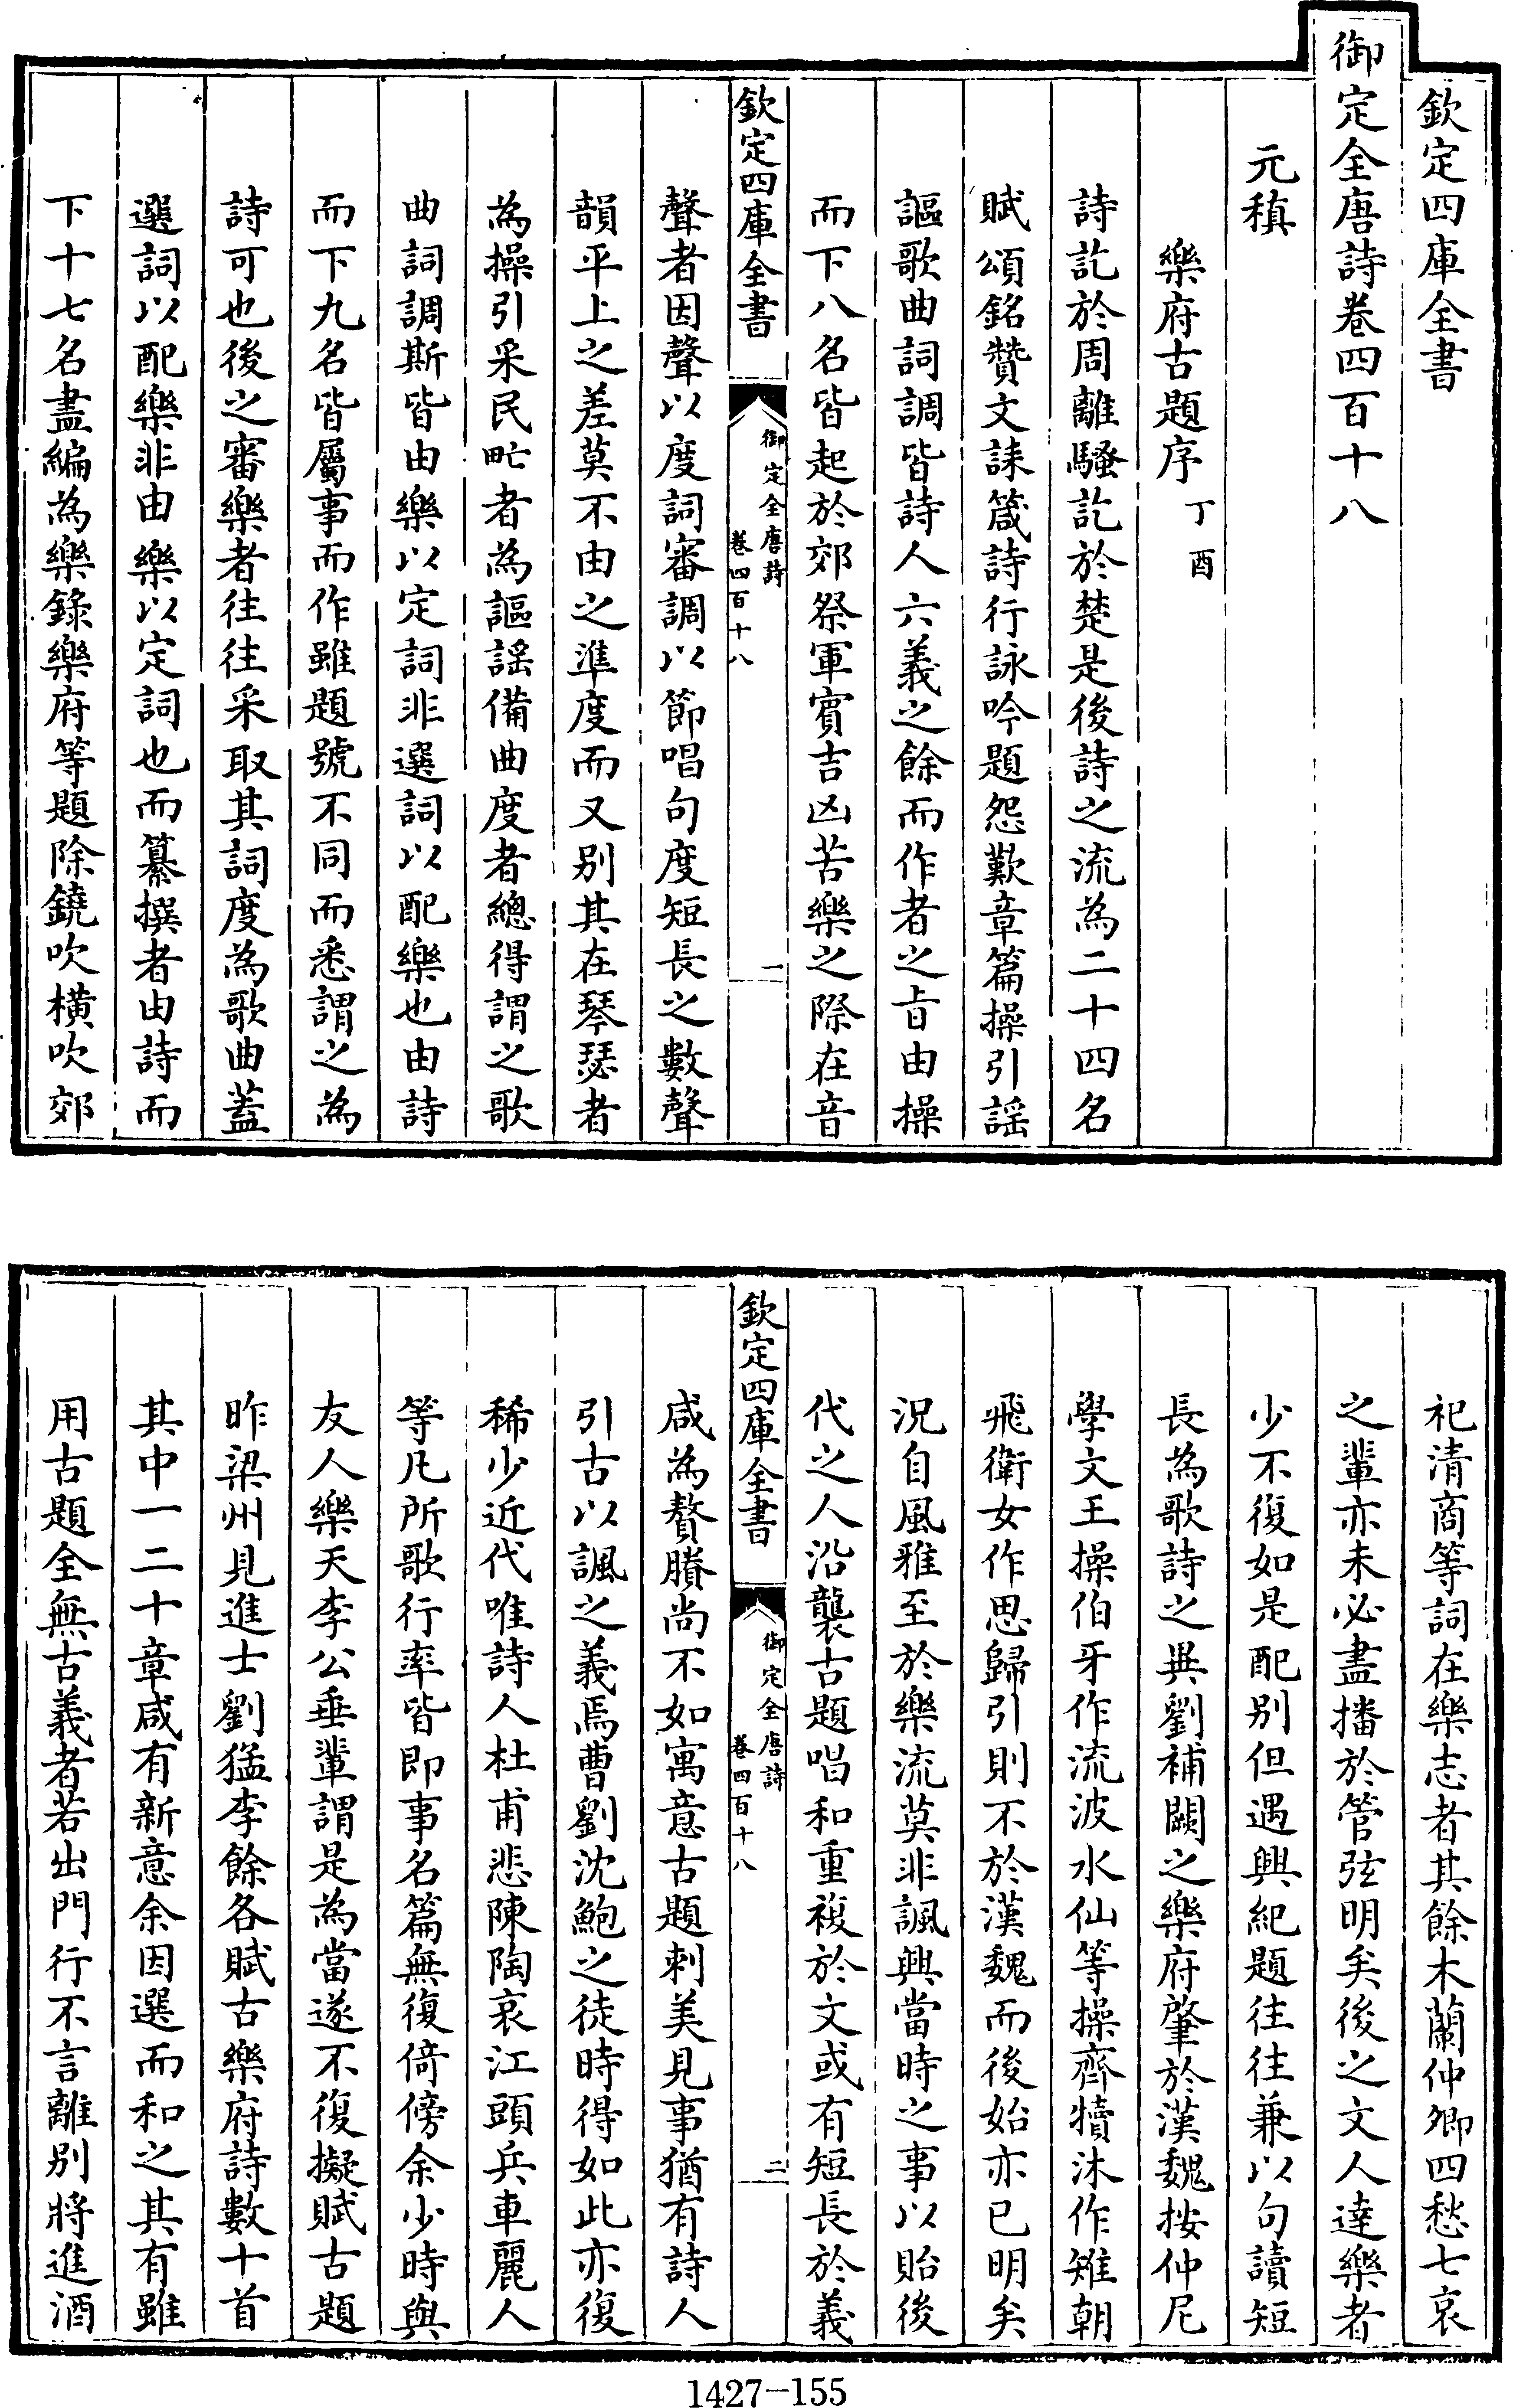 欽定四庫全書
御定全唐詩卷四百十八
元稹
樂府古題序丁酉
詩訖於周離騷訖於楚是後詩之流為二十四名
賦頌銘贊文誄箴詩行詠吟題怨歎章篇操引謠
謳歌曲詞調皆詩人六義之餘而作者之旨由操
而下八名皆起於郊祭軍賓吉凶苦樂之際在音
欽定四庫全書
御定全唐詩
卷四百十八
一
聲者因聲以度詞審調以節唱句度短長之數聲
韻平上之差莫不由之準度而又别其在琴瑟者
為操引采民甿者為謳謠備曲度者總得謂之歌
曲詞調斯皆由樂以定詞非選詞以配樂也由詩
而下九名皆屬事而作雖題號不同而悉謂之為
詩可也後之審樂者往往采取其詞度為歌曲蓋
選詞以配樂非由樂以定詞也而纂撰者由詩而
下十七名盡編為樂錄樂府等題除鐃吹橫吹郊
祀清商等詞在樂志者其餘木蘭仲卿四愁七哀
之輩亦未必盡播於管弦明矣後之文人達樂者
少不復如是配别但遇興紀題往往兼以句讀短
長為歌詩之異劉補闕之樂府肇於漢魏按仲尼
學文王操伯牙作流波水仙等操齊犢沐作雉朝
飛衛女作思歸引則不於漢魏而後始亦已明矣
況自風雅至於樂流莫非諷興當時之事以貽後
代之人沿襲古題唱和重複於文或有短長於義
欽定四庫全書
御定全唐詩
卷四百十八
二
咸為贅賸尚不如寓意古題刺美見事猶有詩人
引古以諷之義焉曹劉沈鮑之徒時得如此亦復
稀少近代唯詩人杜甫悲陳陶哀江頭兵車麗人
等凡所歌行率皆即事名篇無復倚傍余少時與
友人樂天李公垂輩謂是為當遂不復擬賦古題
昨梁州見進士劉猛李餘各賦古樂府詩數十首
其中一二十章咸有新意余因選而和之其有雖
用古題全無古義者若出門行不言離別將進酒
1427-155